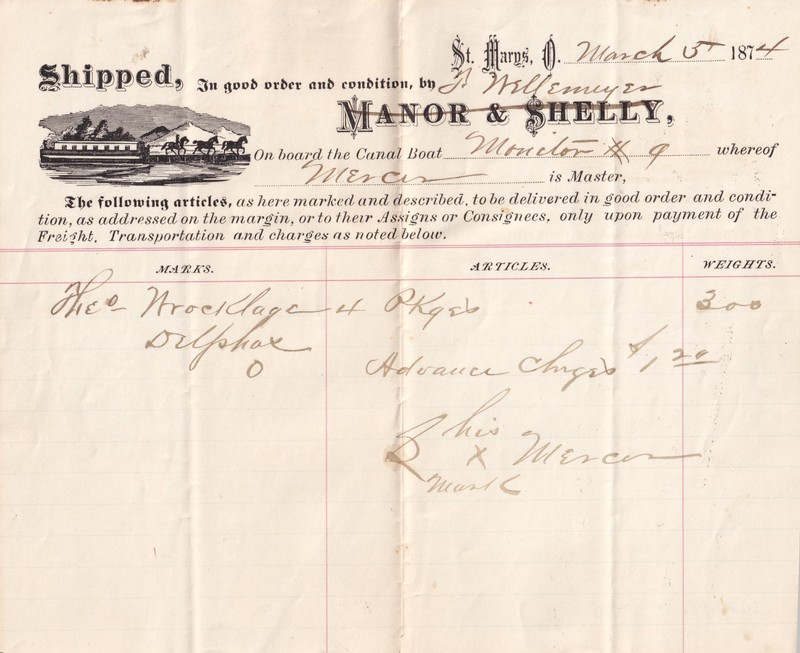 St. Marys, O. March 5 1874
Shipped, In good order and condition, by F. Wellemeyer
MANOR & SHELLY,
On board the Canal Boat Monitor # 9 whereof
Mercer is Master,
The following articles, as here marked and described, to be delivered in good order and condi-
tion, as addressed on the margin, or to their Assigns or Consignees, only upon payment of the
Freight, Transportation and charges as noted below.
MARKS. ARTICLES. WEIGHTS.
Theo Wrocklage 4 Pkges 300
Delphos
O Advance Chrges $1.20
his
X Mercer
Mark